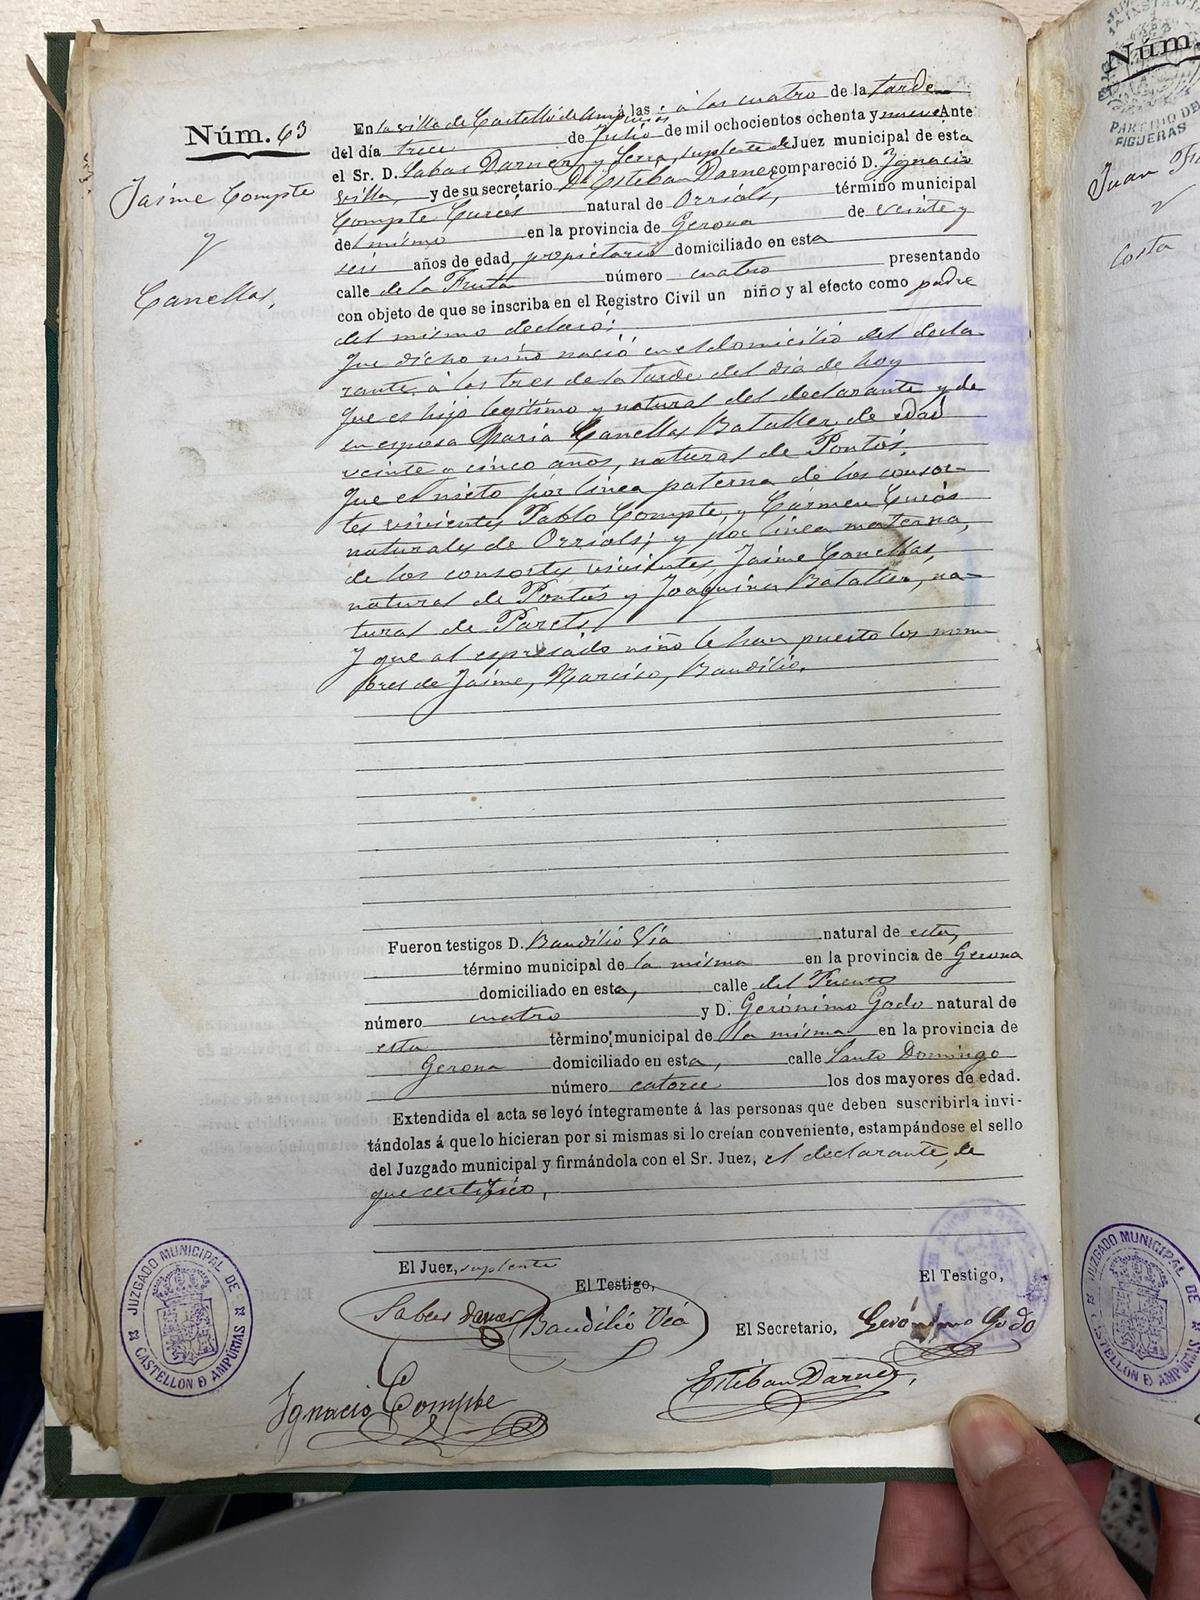 Núm. 63
Jaime Compte
y
Canellas,
En la villa de Castelló de Ampurias á las : á las cuatro de la tarde
del día trece de Julio de mil ochocientos ochenta y nueve Ante
el Sr. D. Sabas Darner y Serra, suplente de Juez municipal de esta
villa, y de su secretario D. Esteban Darner compareció D. Ignacio
Compte Curós natural de Orriols, término municipal
del mismo en la provincia de Gerona de veinte y
seis años de edad, propietario domiciliado en esta
calle de la Fruta número cuatro presentando
con objeto de que se inscriba en el Registro Civil un niño y al efecto como padre
del mismo declaró:
Que dicho niño nació en el domicilio del decla-
rante á las tres de la tarde del dia de hoy
Que es hijo legítimo y natural del declarante y de
su esposa Maria Canellas Bataller, de edad
veinte y cinco años, natural de Pontós.
Que es nieto por línea paterna de los consor-
tes vivientes Pablo Compte y Cármen Curós
naturales de Orriols; y por línea materna,
de los consortes vivientes, Jaime Canellas,
natural de Pontós y Joaquina Bataller, na-
tural de Parets,
Y que al espresado niño le han puesto los nom-
bres de Jaime, Narciso, Baudilio.
Fueron testigos D. Baudilio Via natural de esta,
término municipal de la misma en la provincia de Gerona
domiciliado en esta, calle del Puente
número cuatro y D. Gerónimo Godo natural de
esta término municipal de la misma en la provincia de
Gerona domiciliado en esta, calle Santo Domingo
número catorce los dos mayores de edad.
Extendida el acta se leyó íntegramente á las personas que deben suscribirla invi-
tándolas á que lo hicieran por si mismas si lo creían conveniente, estampándose el sello
del Juzgado municipal y firmándola con el Sr. Juez, el declarante, de
que certifico,
El Juez, suplente
El Testigo,
El Testigo,
Sabas Darner
Baudilio Via
El Secretario,
Gerónimo Godo
Ignacio Compte
Esteban Darner,
JUZGADO MUNICIPAL DE
CASTELLON D AMPURIAS
Núm.
PARTIDO DE
FIGUERAS
Juan
y
Costa
JUZGADO MUNICIPAL DE
CASTELLON D AMPURIAS